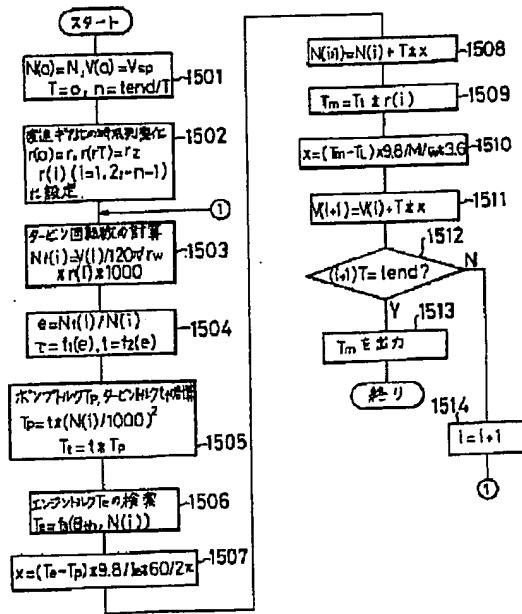 スタート
N(0)=N, V(0)=Vsp
T=0, n=tend/T
1501
変速ギア比の時系列変化
r(0)=r, r(nT)=r2
r(i) (i=1,2,-n-1)
に設定.
1502
①
タービン回転数の計算
Nt(i)=V(i)/120π/rw
*r(i)*1000
1503
e=Nt(i)/N(i)
τ=f1(e), t=f2(e)
1504
ポンプトルクTp, タービントルクTt
Tp=t*(N(i)/1000)²
Tt=t*Tp
1505
エンジントルクTeの検索
Te=f3(θth, N(i))
1506
x=(Te-Tp)*9.8/Ie*60/2π
1507
N(i+1)=N(i)+T*x
1508
Tm=Tt*r(i)
1509
x=(Tm-TL)*9.8/M/rw*3.6
1510
V(i+1)=V(i)+T*x
1511
1512
(i+1)T=tend?
N
Y
1513
Tmを出力
終り
1514
i=i+1
①